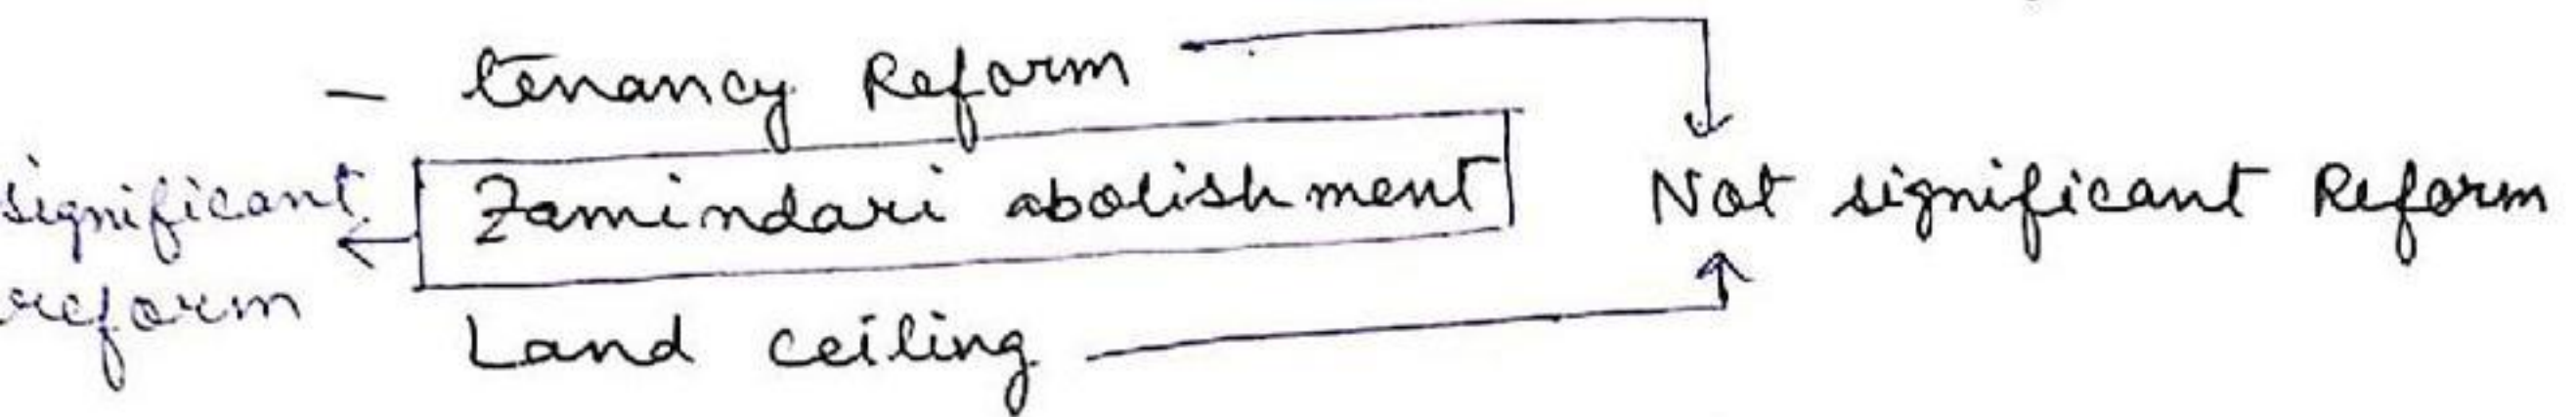 - tenancy Reform
significant reform
Zamindari abolishment
Not significant Reform
Land ceiling